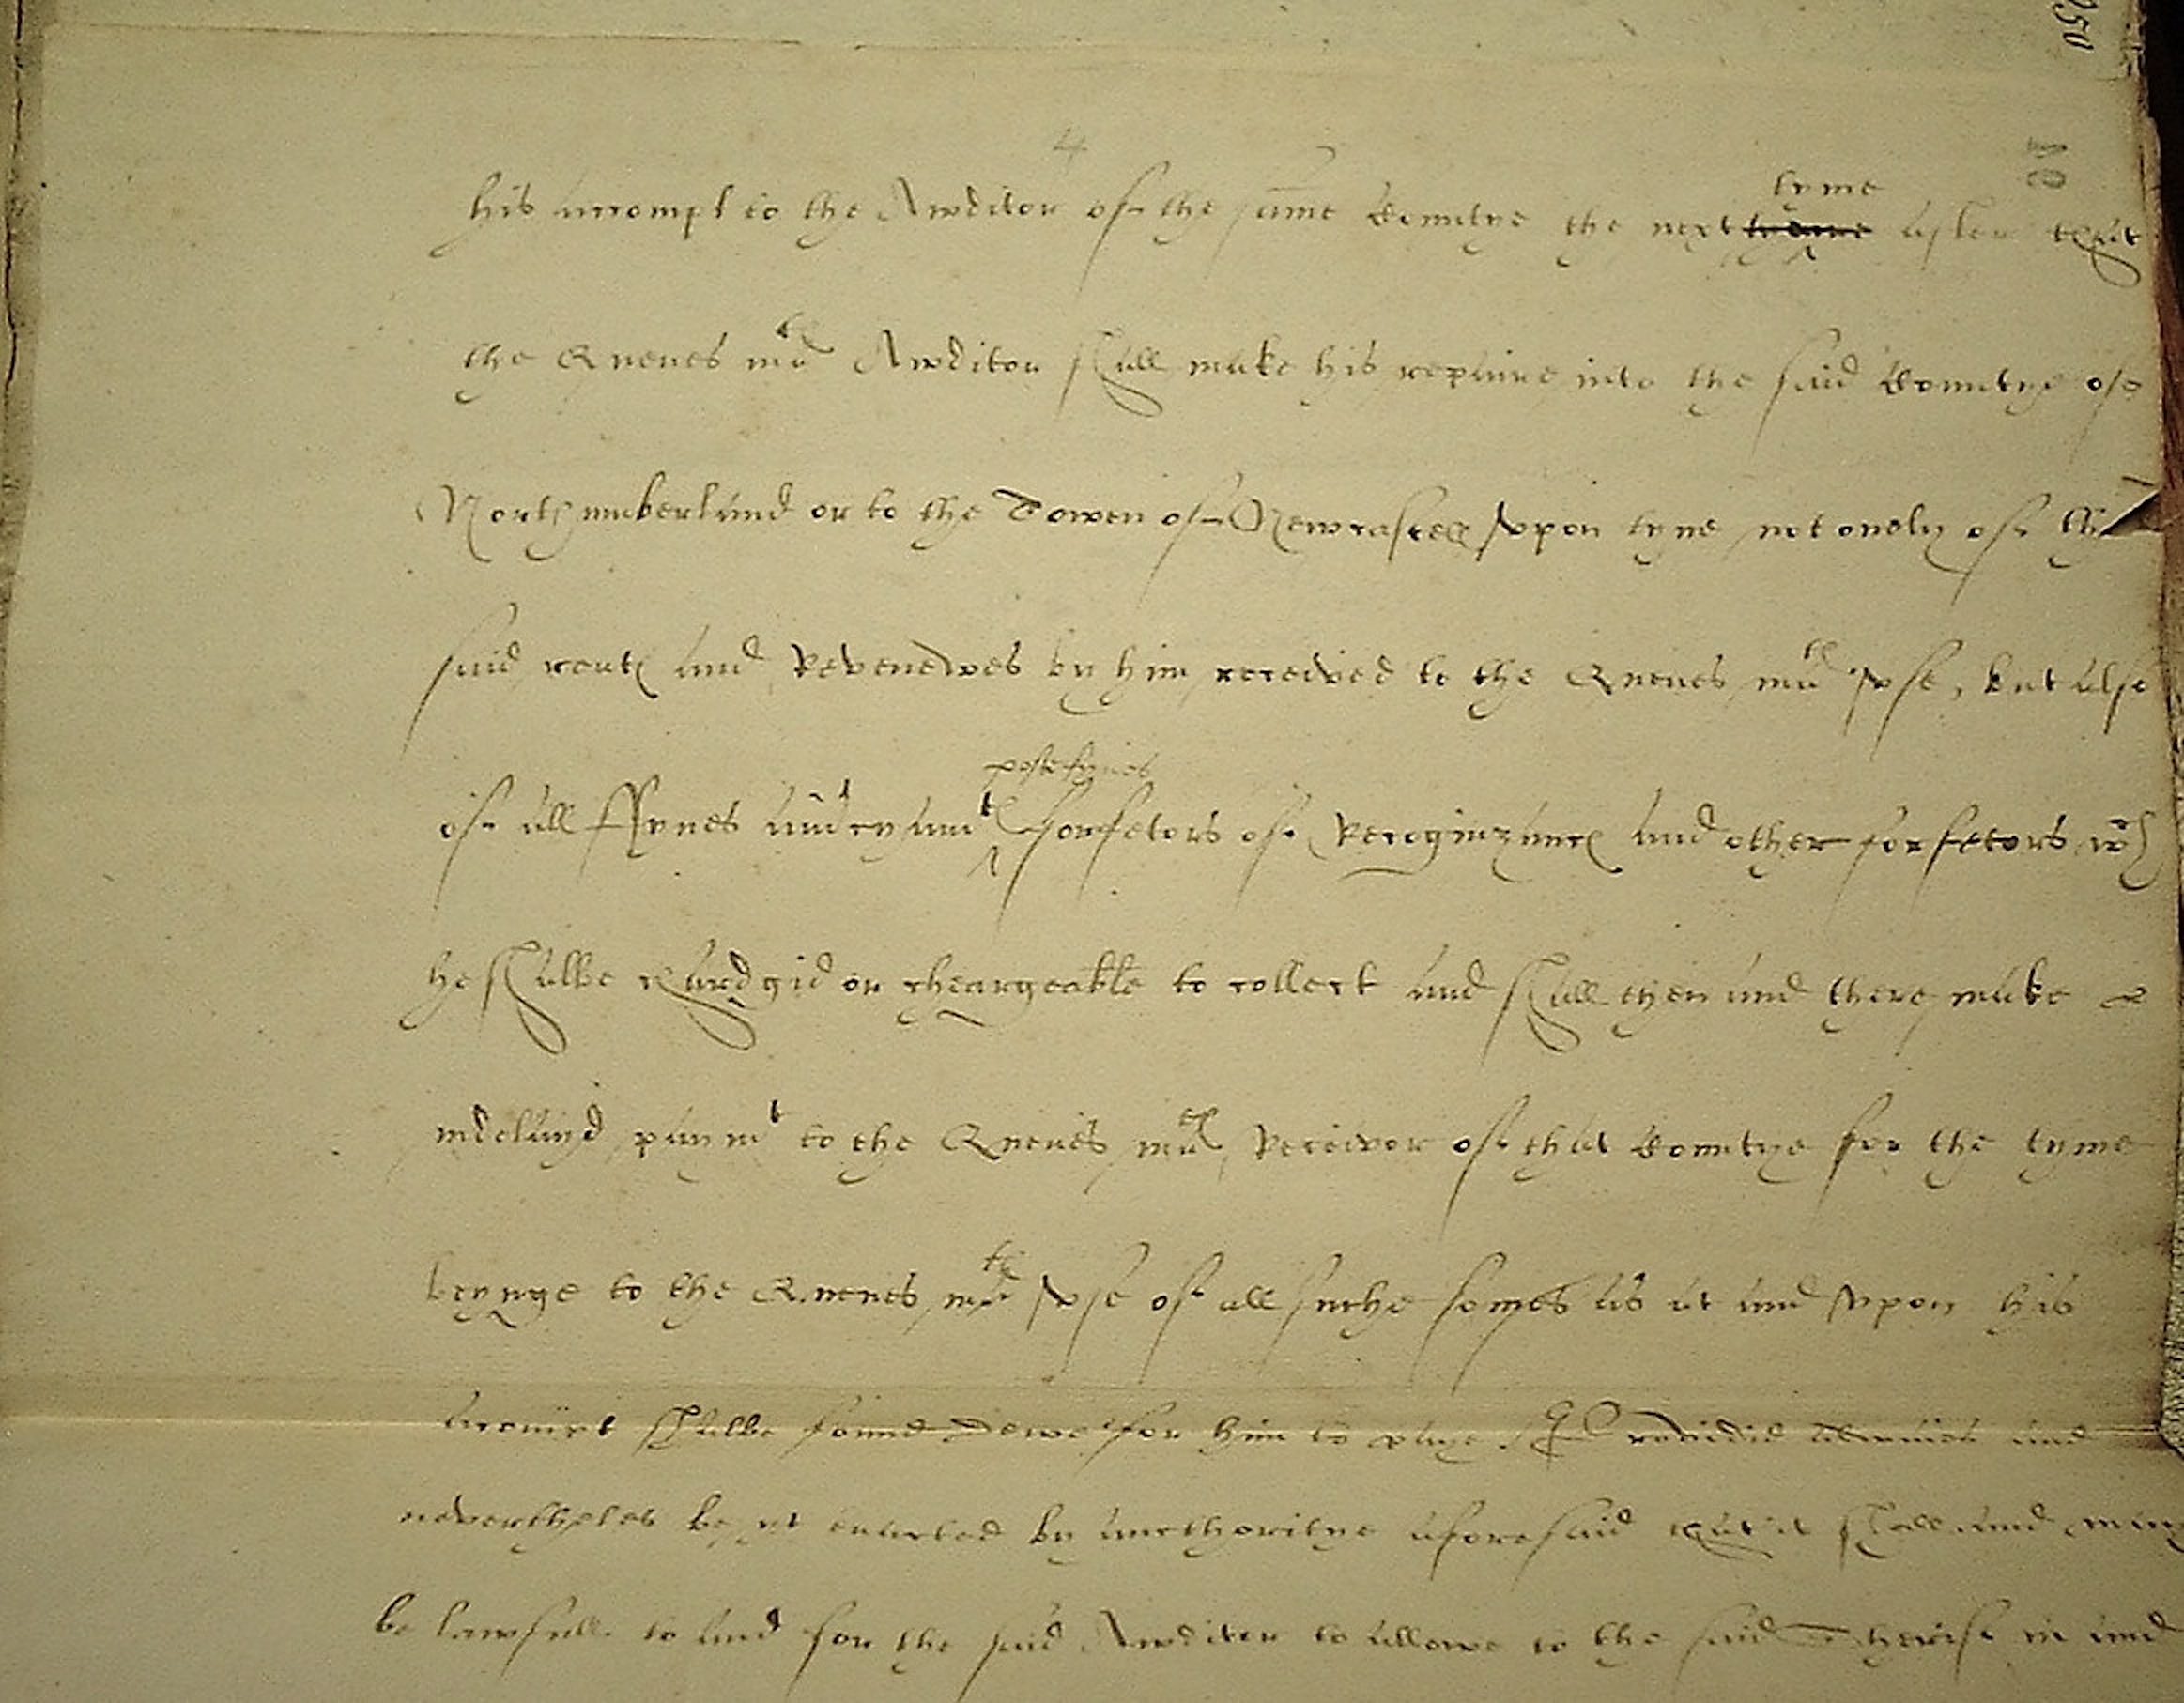 4
his accompt to the Awditor of the same Countye the next tyme after that
the Quenes mats Awditor shall make his repaire into the said Countye of
Northumberland or to the Towen of Newcastell vpon tyne not onely of the
said rents and Revenewes by him receaved to the Quenes mats vse, but also
postefynes
of all ffynes amerciamts forfetors of Recognizances and other forfetors wch
he shalbe chardgid or cheargeable to collect and shall then and there make
indelayd paymt to the Quenes mats Receivor of that Countye for the tyme
beynge to the Quenes mats vse of all suche somes as at and vpon his
accoumpt shalbe found dewe for him to paye And
nevertheles be yt enacted by aucthoritye aforesaid that it shall and may
be lawfull to and for the said Awditor to allowe to the said Sherife in and